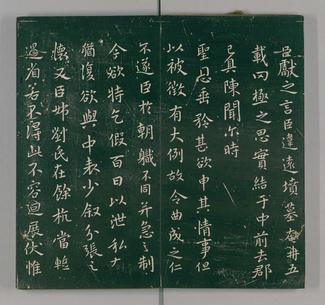 臣獻之言臣違遠墳墓奄冉五
載罔極之思實結于中前去郡
已具陳聞爾時
聖恩垂矜甚欲申其情事但
以被徵有大例故令曲成之仁
不遂臣於朝職不同并急之制
今欲特乞假百日以泄私
猶復欲與中表少敘分張之
懷又臣姊劉氏在餘杭當
過省若不得此不容迴展伏惟